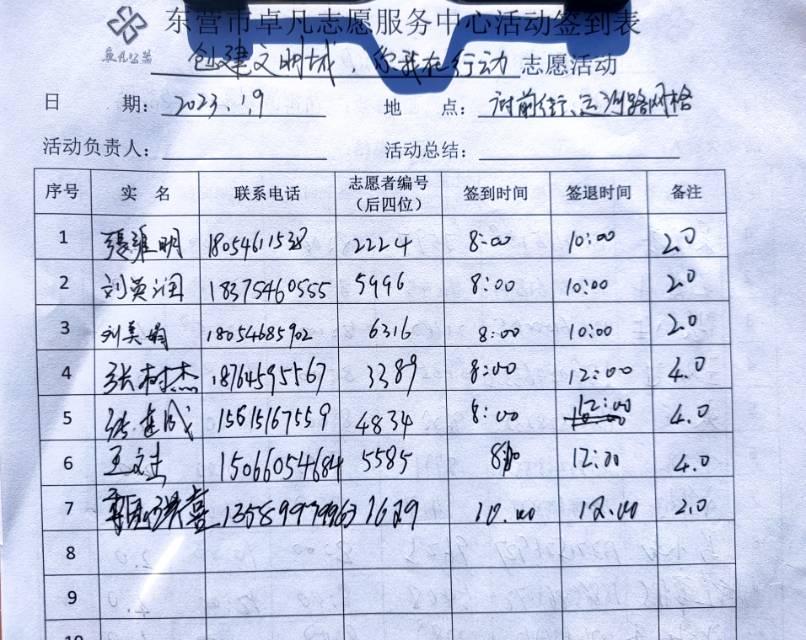 东营市卓凡志愿服务中心活动签到表
卓凡公益
创建文明城，你我在行动 志愿活动
日 期：2023.1.9 地 点：府前街、运河路网格
活动负责人： 活动总结：
序号 实 名 联系电话 志愿者编号（后四位） 签到时间 签退时间 备注
1 張維明 18054611538 2224 8:00 10:00 2.0
2 刘英润 18375460555 5996 8:00 10:00 2.0
3 刘美娟 18054685902 6316 8:00 10:00 2.0
4 张树杰 18764595567 3389 8:00 12:00 4.0
5 张建成 15615167559 4834 8:00 12:00 4.0
6 王文 15066054684 5585 12:00 4.0
7 洪喜 1629 10.00 12.00 2.0
8
9
10